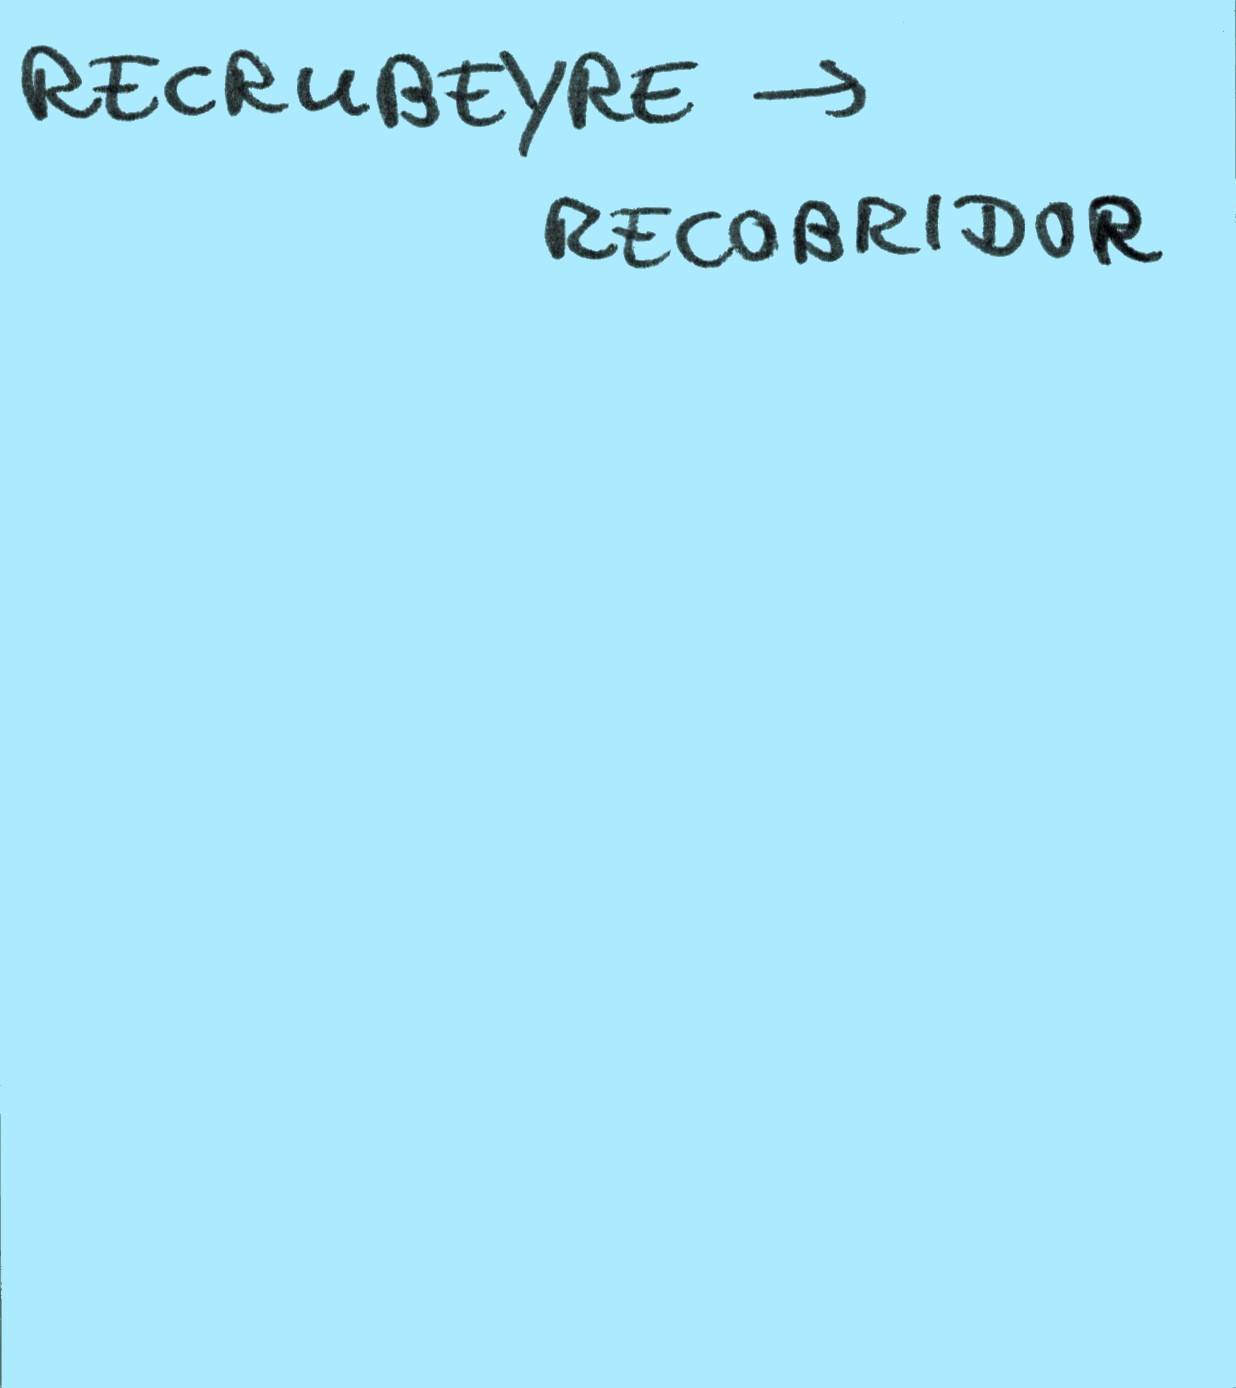 RECRUBEYRE →
RECOBRIDOR